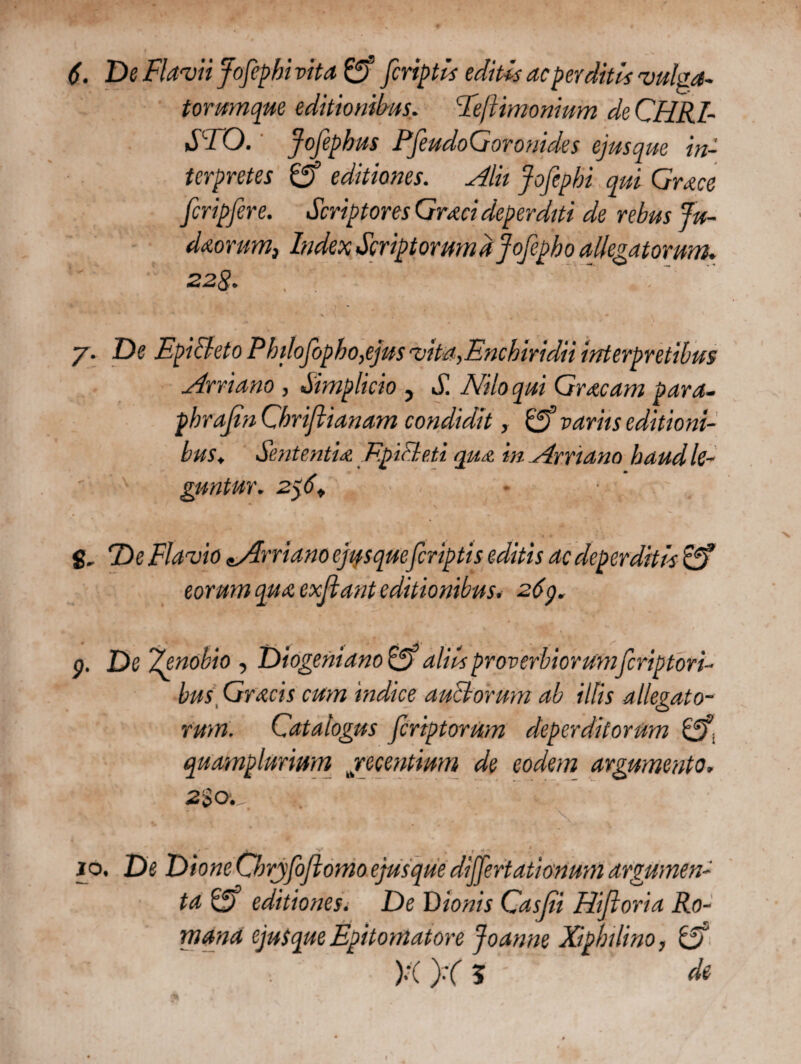 6. De Flavii Joſephi vita & ſcriptis editis ac perditis vulga-
torumque editionibus. Teſtimonium de CHRI-
STO. Joſephus PſeudoGoronides ejusque in-
terpretes & editiones. Alii Joſephi qui Græce
ſcripſere. Scriptores Græci deperditi de rebus Ju-
dæorum, Index Scriptorum à Joſepho allegatorum.
228.
7. De Epicteto Philoſopho, ejus vita, Enchiridii interpretibus
Arriano, Simplicio, S. Nilo qui Græcam para-
phraſin Chriſtianam condidit, & variis editioni-
bus. Sententiæ Epicteti quæ in Arriano haud le-
guntur. 256.
8. De Flavio Arriano ejusque ſcriptis editis ac deperditis &
eorum quæ exſtant editionibus. 269.
9. De Zenobio, Diogeniano & aliis proverbiorum ſcriptori-
bus Græcis cum indice auctorum ab illis allegato-
rum. Catalogus ſcriptorum deperditorum &
quamplurium recentium de eodem argumento.
280.
10. De Dione Chryſoſtomo ejusque diſſertationum argumen-
ta & editiones. De Dionis Casſii Hiſtoria Ro-
mana ejusque Epitomatore Joanne Xiphilino, &
):( ):( 3 de